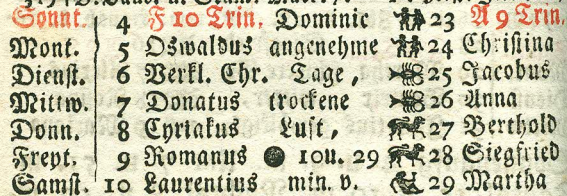 Sonnt. 4 F 10 Trin. Dominic 23 A 9 Trin.
Mont. 5 Oswaldus angenehme 24 Christina
Dienst. 6 Verkl. Chr. Tage, 25 Jacobus
Mittw. 7 Donatus trockene 26 Anna
Donn. 8 Cyriakus Luft, 27 Berthold
Freyt. 9 Romanus 10 u. 29 28 Siegfried
Samst. 10 Laurentius min. v. 29 Martha